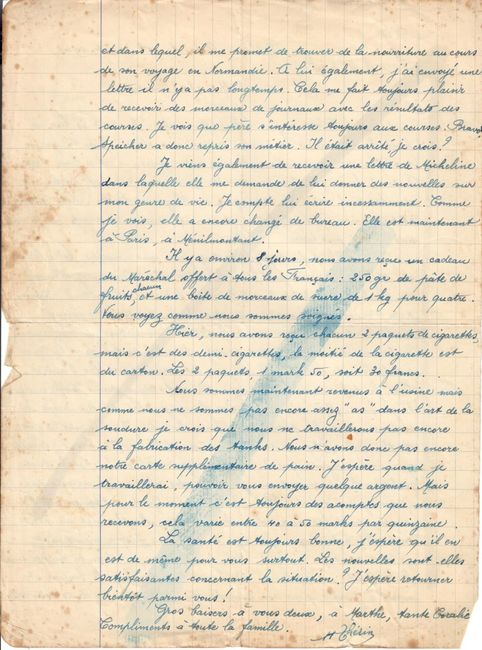 et dans lequel, il me promet de trouver de la nourriture au cours
de son voyage en Normandie. A lui également, j'ai envoyé une
lettre il n'y a pas longtemps. Cela me fait toujours plaisir
de recevoir des morceaux de journaux avec les résultats des
courses. Je vois que père s'intéresse toujours aux courses. Bravo!
Speicher a donc repris son métier. Il était arrêté, je crois?
Je viens également de recevoir une lettre de Micheline
dans laquelle elle me demande de lui donner des nouvelles sur
mon genre de vie. Je compte lui écrire incessamment. Comme
je vois, elle a encore changé de bureau. Elle est maintenant
à Paris, à Ménilmontant.
Il y a environ 8 jours, nous avons reçu un cadeau
du Maréchal offert à tous les Français: 250 gr de pâte de
fruits chacun, et une boîte de morceaux de sucre de 1 kg pour quatre.
Vous voyez comme nous sommes soignés.
Hier, nous avons reçu chacun 2 paquets de cigarettes,
mais c'est des demi-cigarettes, la moitié de la cigarette est
du carton. Les 2 paquets, 1 mark 50, soit 30 francs.
Nous sommes maintenant revenus à l'usine mais
comme nous ne sommes pas encore assez "as" dans l'art de la
soudure je crois que nous ne travaillerons pas encore
à la fabrication des tanks. Nous n'avons donc pas encore
notre carte supplémentaire de pain. J'espère quand je
travaillerai, pouvoir vous envoyer quelque argent. Mais
pour le moment c'est toujours des acomptes que nous
recevons, cela varie entre 40 à 50 marks par quinzaine.
La santé est toujours bonne, j'espère qu'il en
est de même pour vous surtout. Les nouvelles sont-elles
satisfaisantes concernant la situation? J'espère retourner
bientôt parmi vous!
Gros baisers à vous deux, à Marthe, tante Coralie
Compliments à toute la famille.